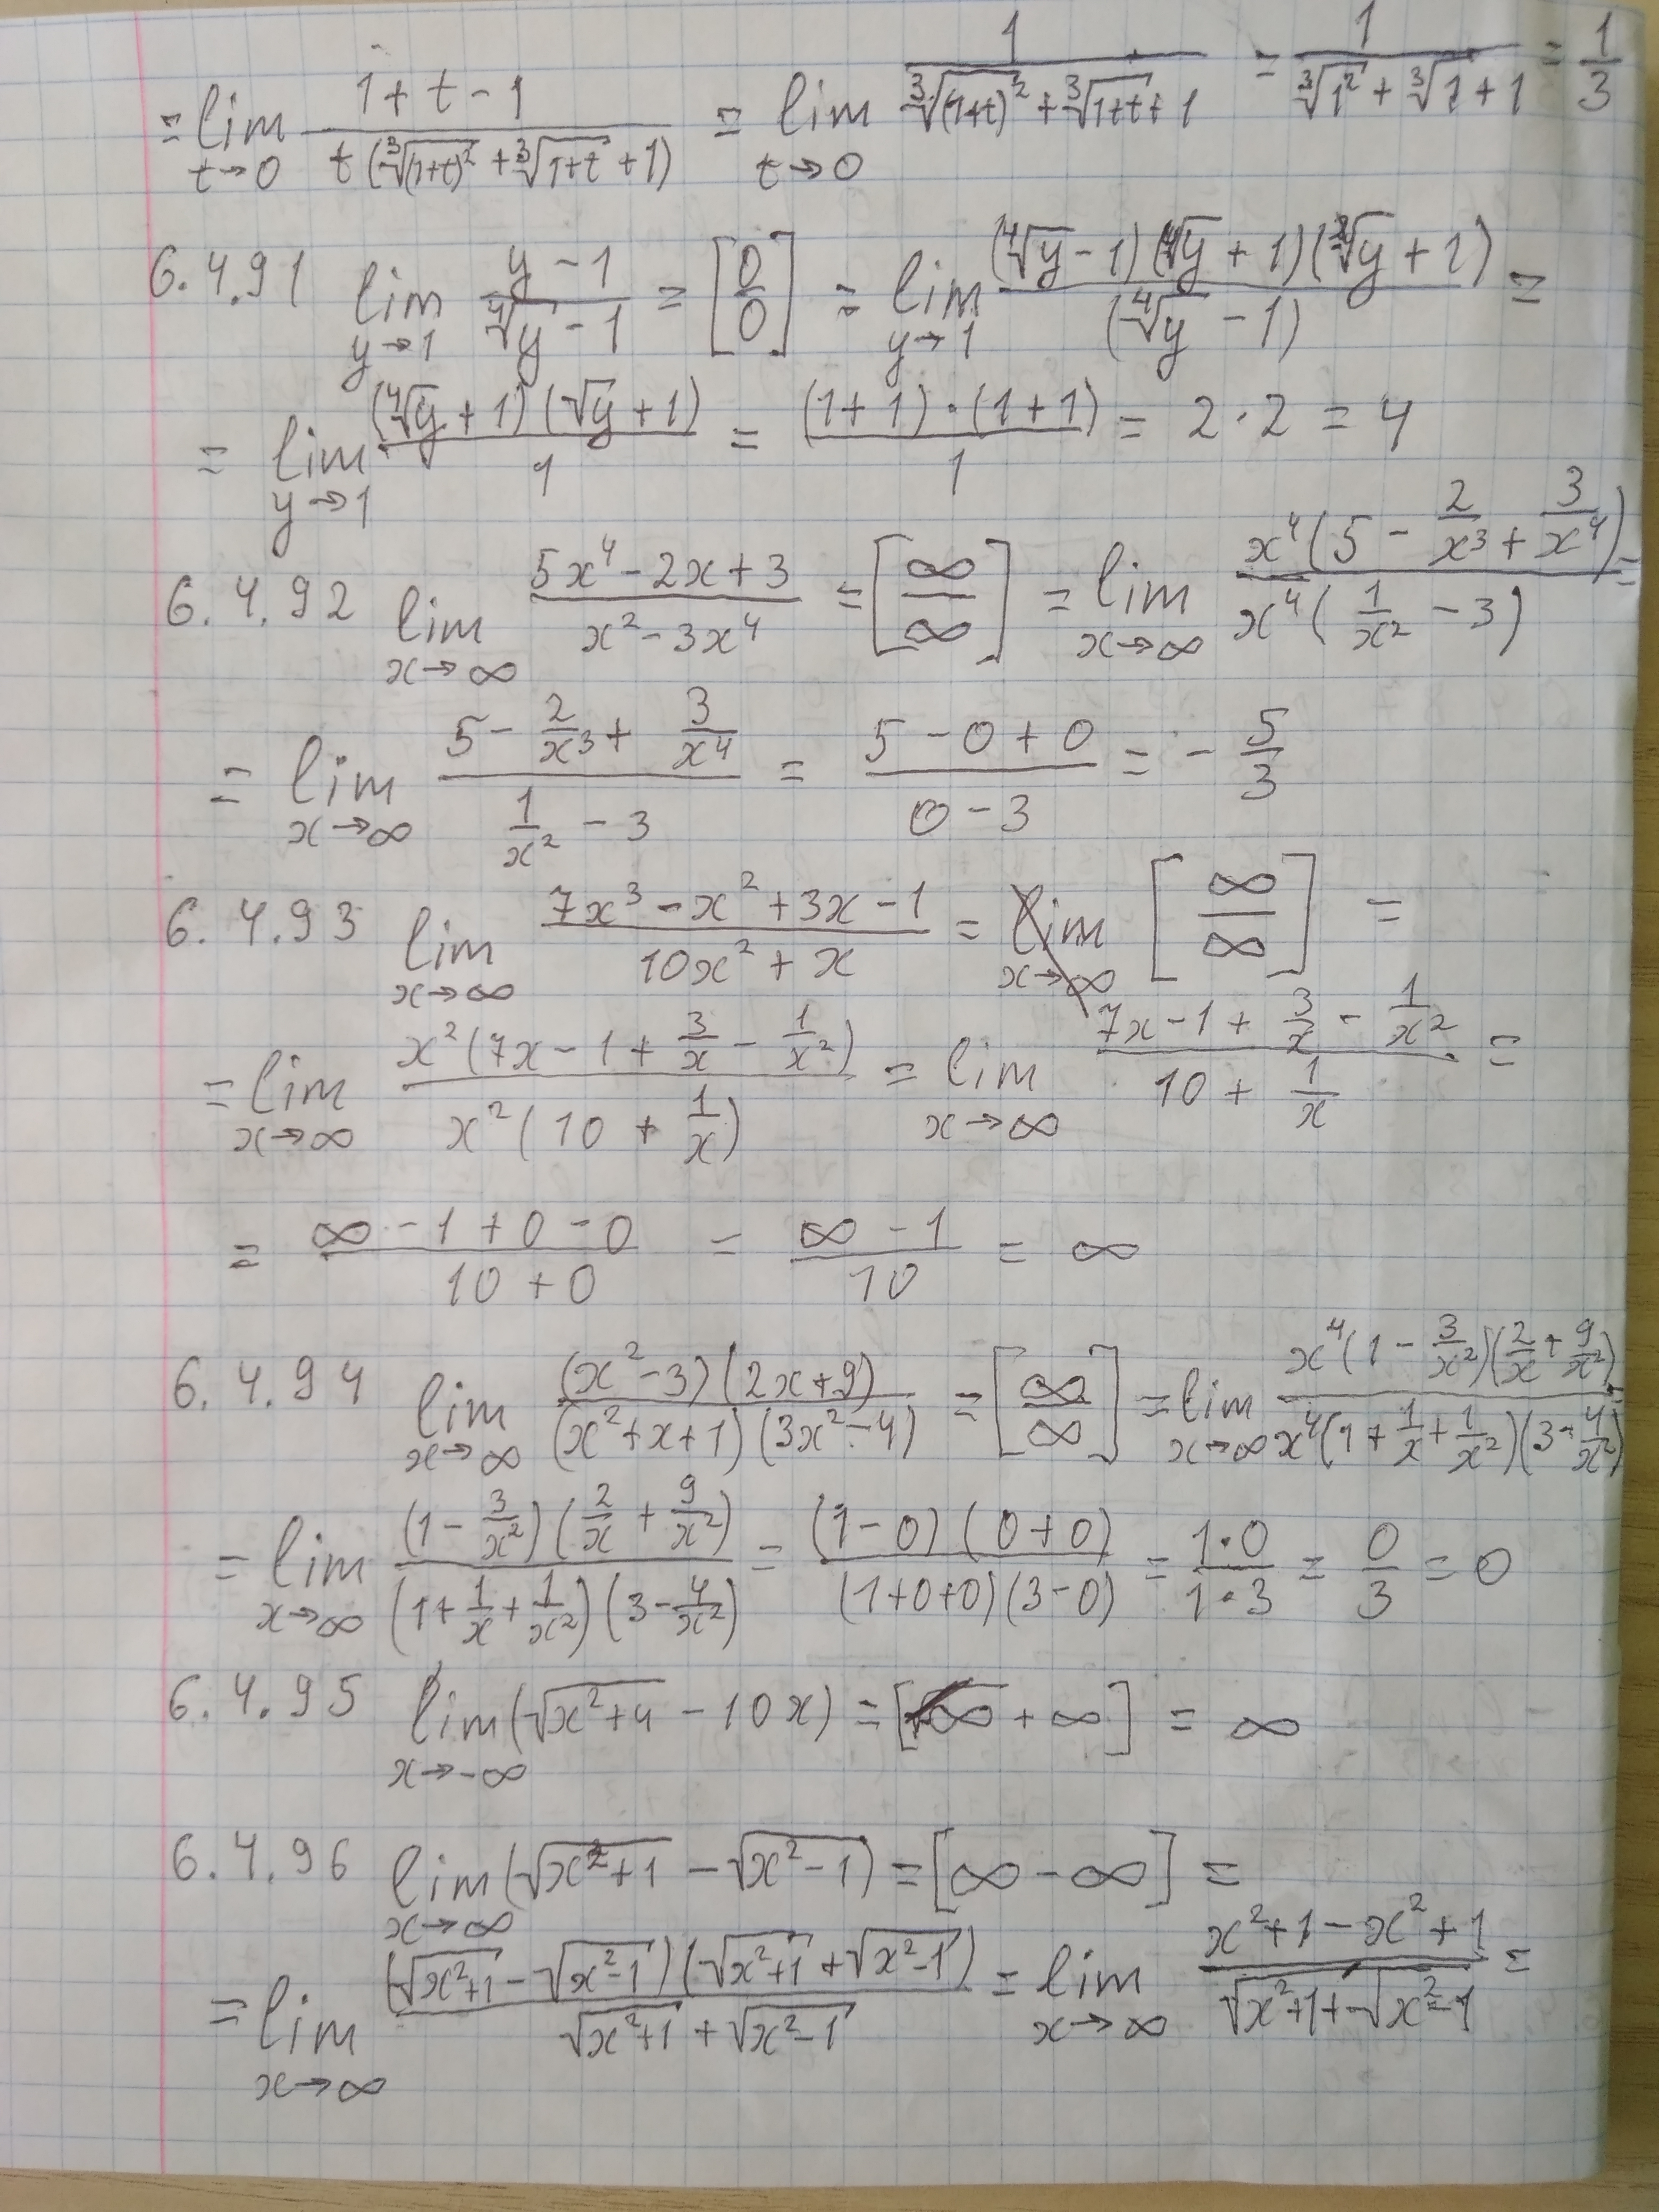 = lim_{t→0} (1+t-1)/(t(∛(1+t)² + ∛(1+t) + 1)) = lim_{t→0} 1/(∛(1+t)² + ∛(1+t) + 1) = 1/(∛1² + ∛1 + 1) = 1/3
6.4.91 lim_{y→1} (y-1)/(∜y - 1) = [0/0] = lim_{y→1} ((∜y - 1)(∜y + 1)(√y + 1))/(∜y - 1) =
= lim_{y→1} ((∜y + 1)(√y + 1))/1 = ((1+1)·(1+1))/1 = 2·2 = 4
6.4.92 lim_{x→∞} (5x⁴ - 2x + 3)/(x² - 3x⁴) = [∞/∞] = lim_{x→∞} (x⁴(5 - 2/x³ + 3/x⁴))/(x⁴(1/x² - 3)) =
= lim_{x→∞} (5 - 2/x³ + 3/x⁴)/(1/x² - 3) = (5-0+0)/(0-3) = -5/3
6.4.93 lim_{x→∞} (7x³ - x² + 3x - 1)/(10x² + x) = [∞/∞] =
= lim_{x→∞} (x²(7x - 1 + 3/x - 1/x²))/(x²(10 + 1/x)) = lim_{x→∞} (7x - 1 + 3/x - 1/x²)/(10 + 1/x) =
= (∞-1+0-0)/(10+0) = (∞-1)/10 = ∞
6.4.94 lim_{x→∞} ((x²-3)(2x+9))/((x²+x+1)(3x²-4)) = [∞/∞] = lim_{x→∞} (x⁴(1 - 3/x²)(2/x + 9/x²))/(x⁴(1 + 1/x + 1/x²)(3 - 4/x²)) =
= lim_{x→∞} ((1 - 3/x²)(2/x + 9/x²))/((1 + 1/x + 1/x²)(3 - 4/x²)) = ((1-0)(0+0))/((1+0+0)(3-0)) = (1·0)/(1·3) = 0/3 = 0
6.4.95 lim_{x→-∞} (√(x²+4) - 10x) = [∞ + ∞] = ∞
6.4.96 lim_{x→∞} (√(x²+1) - √(x²-1)) = [∞ - ∞] =
= lim_{x→∞} ((√(x²+1) - √(x²-1))(√(x²+1) + √(x²-1)))/(√(x²+1) + √(x²-1)) = lim_{x→∞} (x²+1-x²+1)/(√(x²+1) + √(x²-1)) =